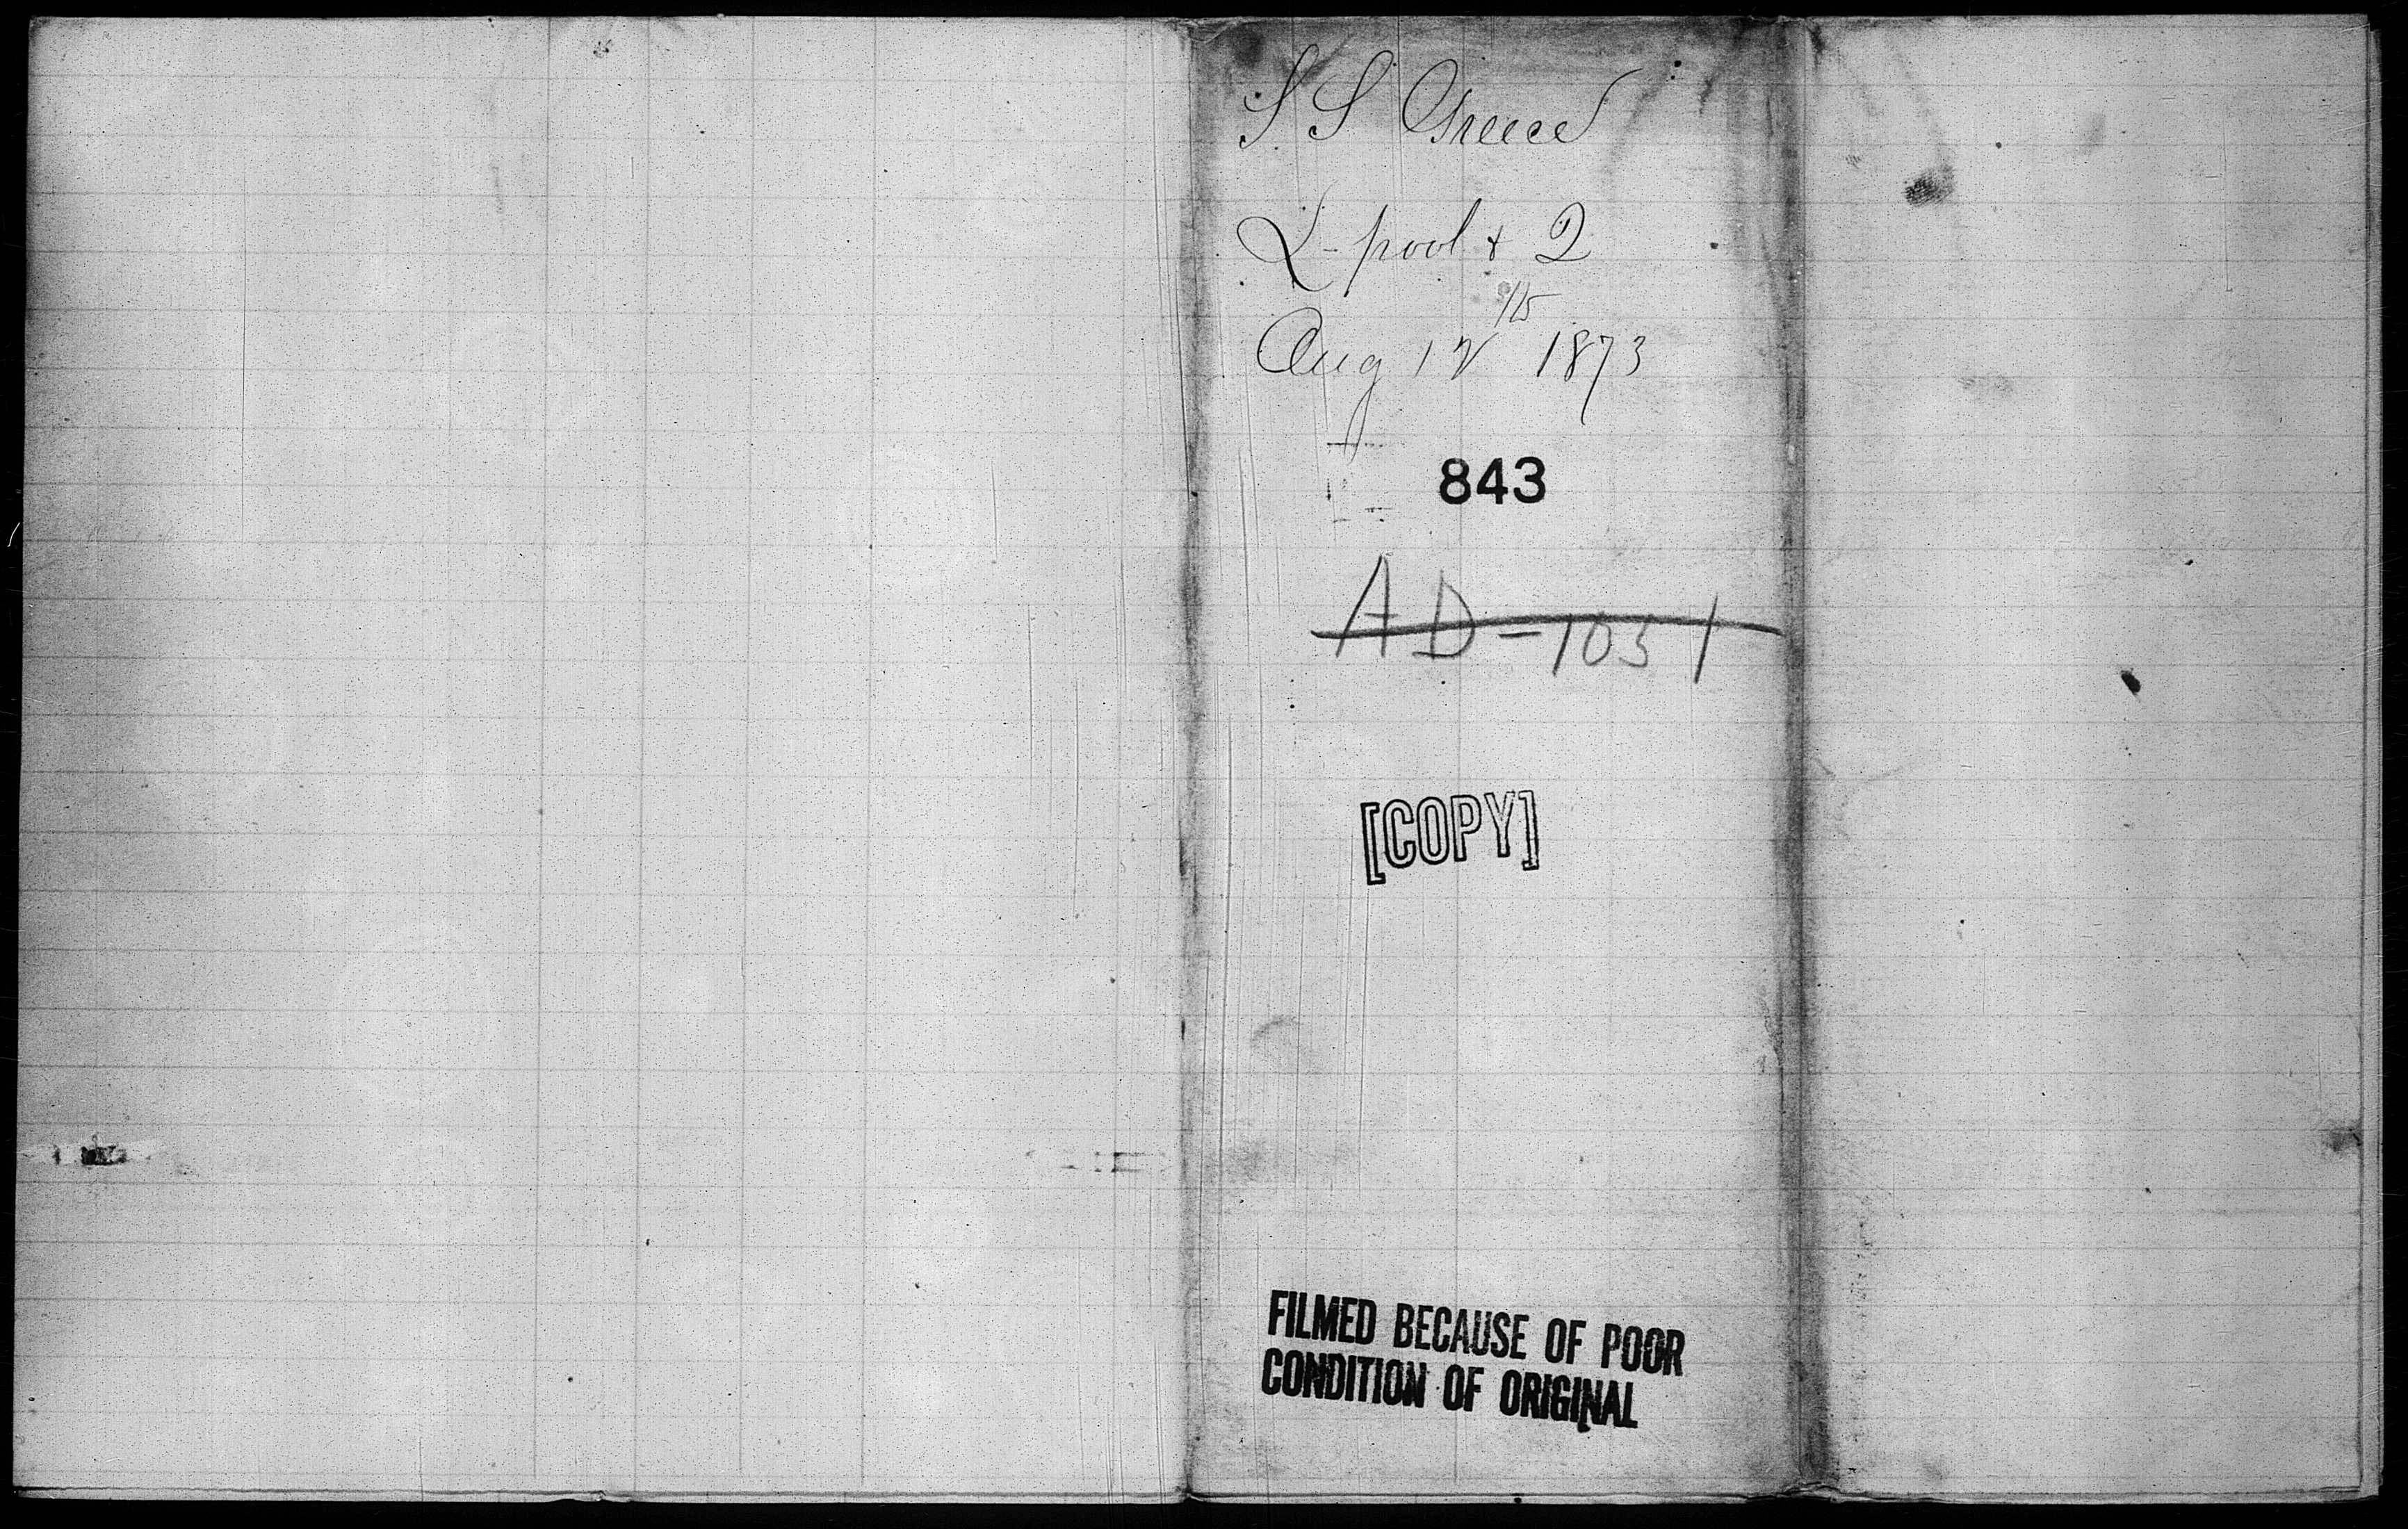 S S Greece
L-pool & Q
Aug 12 1873
843
AD-1051
[COPY]
FILMED BECAUSE OF POOR
CONDITION OF ORIGINAL